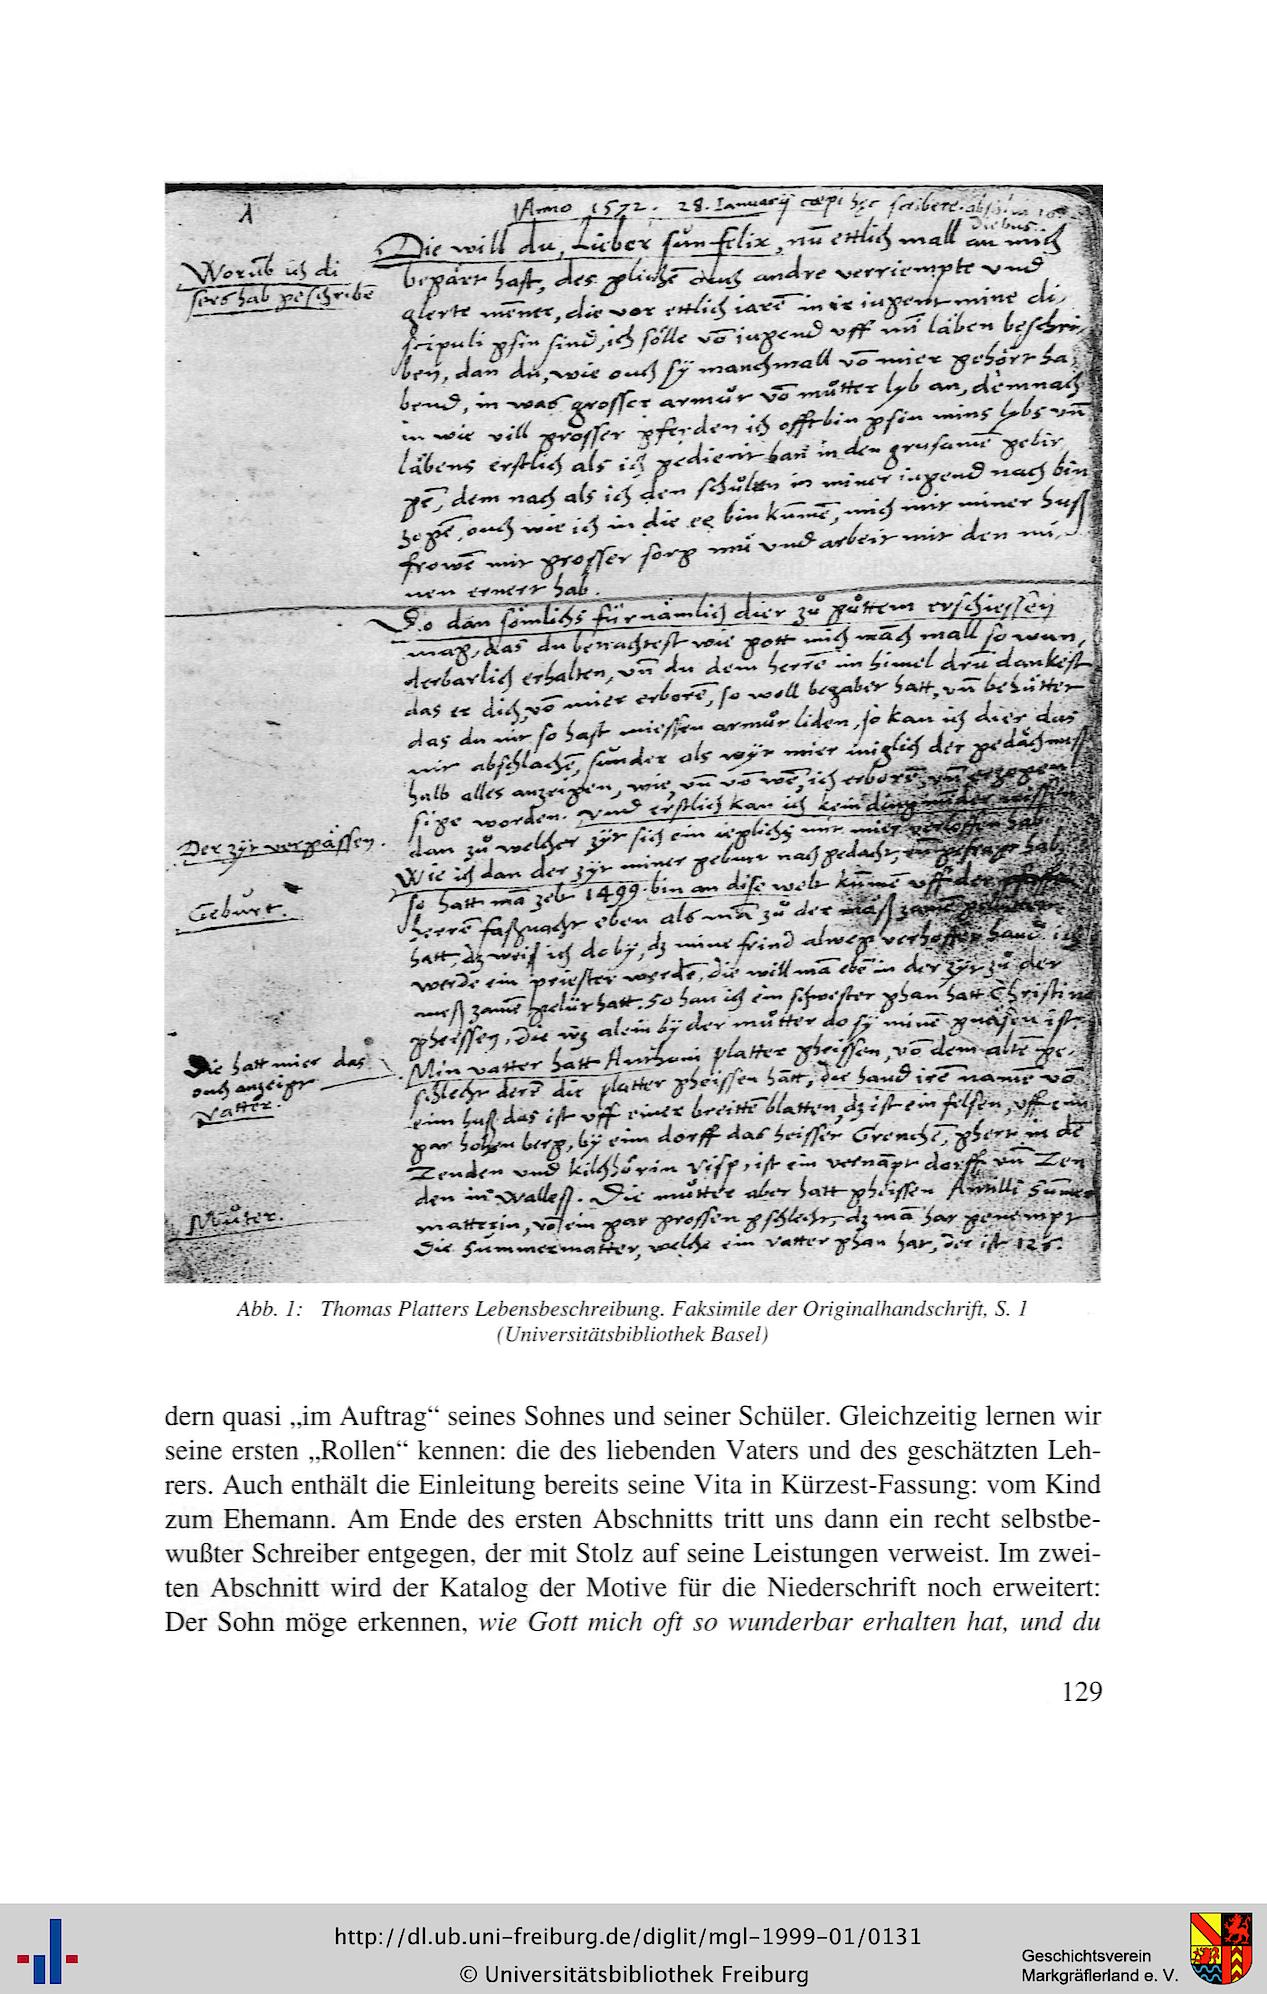 A
Anno 1572. 28. Ianuarij cœpi hęc scribere. absolvi 16
diebus.
Die will du, Lieber sun felix, nu ettlich mall an mich
Worub ich di
sers hab geschribē
begärt hast, des glichē ouch andre verriempte und
glerte mēner, die vor ettlich iarē in ir iugent mine di,
scipuli gsin sind, ich sölle vō iugend uff mī läben beschri,
ben, dan du, wie ouch sy manchmall vō mier gehört ha,
bend, in was grosser armůt vō můtter lyb an, demnach
in wie vill grosser gferden ich offt bin gsin mins lybs uñ
läbens erstlich als ich gedient han in den grusamē gebir,
gē, dem nach als ich den schůlen in miner iugend nach bin
zogē, ouch wie ich in die ee bin kumē, mich mit miner huß
frowē mit grosser sorg mů und arbeit mit den mi,
nen ernert hab.
So dan sömlichs fürnämlich dier zů gůttem erschiessen
mag, das du betrachtest wie gott mich mäch mall so wun,
derbarlich erhalten, uñ du dem herrē im himel drum dankest
das er dich, vō mier erborē, so woll begabet hatt, uñ behůttet
das du nit so hast miessen armůt liden, so kan ich dier das
nit abschlachē, sunder als vyr mier miglich der gedächtnuß
halb alles anzeigen, wie, uñ vō wē, ich erborē, uñ erzogen
sige worden. und erstlich kan ich kein ding minder wissen
dan zů welcher zyt sich ein ieglichs mit mier verloffen hab
Der zyt vergässen.
Wie ich dan der zyt miner geburt nach gedacht, uñ gefragt hab,
so hatt mā zelt 1499. bin an dise welt kumē uff der
Geburt.
herrē faßnacht eben als mā zů der mäß zamē
hatt, dz weiß ich do by, dz mine frind alweg verhoffet hand ich
werde ein priester werdē, die will mā ebē in der zyt zů der
meß zamē gelüt hatt. So han ich ein schwester ghan hatt Christina
gheissen, die wz alein by der můtter do sy minē gnäsen ist.
Die hatt mier das
ouch anzeigt
Min vatter hatt Anthoni platter gheissen, vō dem altē ge,
Vatter.
schlecht derē die platter gheissen hatt, die hand irē namē vō
eim huß das ist uff einer breittē blatten, dz ist ein felsen, uff eim
gar hohen berg, by eim dorff das heisset Grenchē, ghert in dē
Zenden und kilchhörin Visp, ist ein vernāpt dorff uñ Zen
den in Walleß. Die můtter aber hatt gheissen Amilli Summer
Můter.
matterin, vō ein gar grossen gschlecht, dz mā hat genempt
Die Summermatter, welche ein vatter ghan hat, der ist 126.
Abb. 1: Thomas Platters Lebensbeschreibung. Faksimile der Originalhandschrift, S. 1
(Universitätsbibliothek Basel)
dern quasi „im Auftrag“ seines Sohnes und seiner Schüler. Gleichzeitig lernen wir
seine ersten „Rollen“ kennen: die des liebenden Vaters und des geschätzten Leh-
rers. Auch enthält die Einleitung bereits seine Vita in Kürzest-Fassung: vom Kind
zum Ehemann. Am Ende des ersten Abschnitts tritt uns dann ein recht selbstbe-
wußter Schreiber entgegen, der mit Stolz auf seine Leistungen verweist. Im zwei-
ten Abschnitt wird der Katalog der Motive für die Niederschrift noch erweitert:
Der Sohn möge erkennen, wie Gott mich oft so wunderbar erhalten hat, und du
129
http://dl.ub.uni-freiburg.de/diglit/mgl-1999-01/0131
© Universitätsbibliothek Freiburg
Geschichtsverein
Markgräflerland e. V.